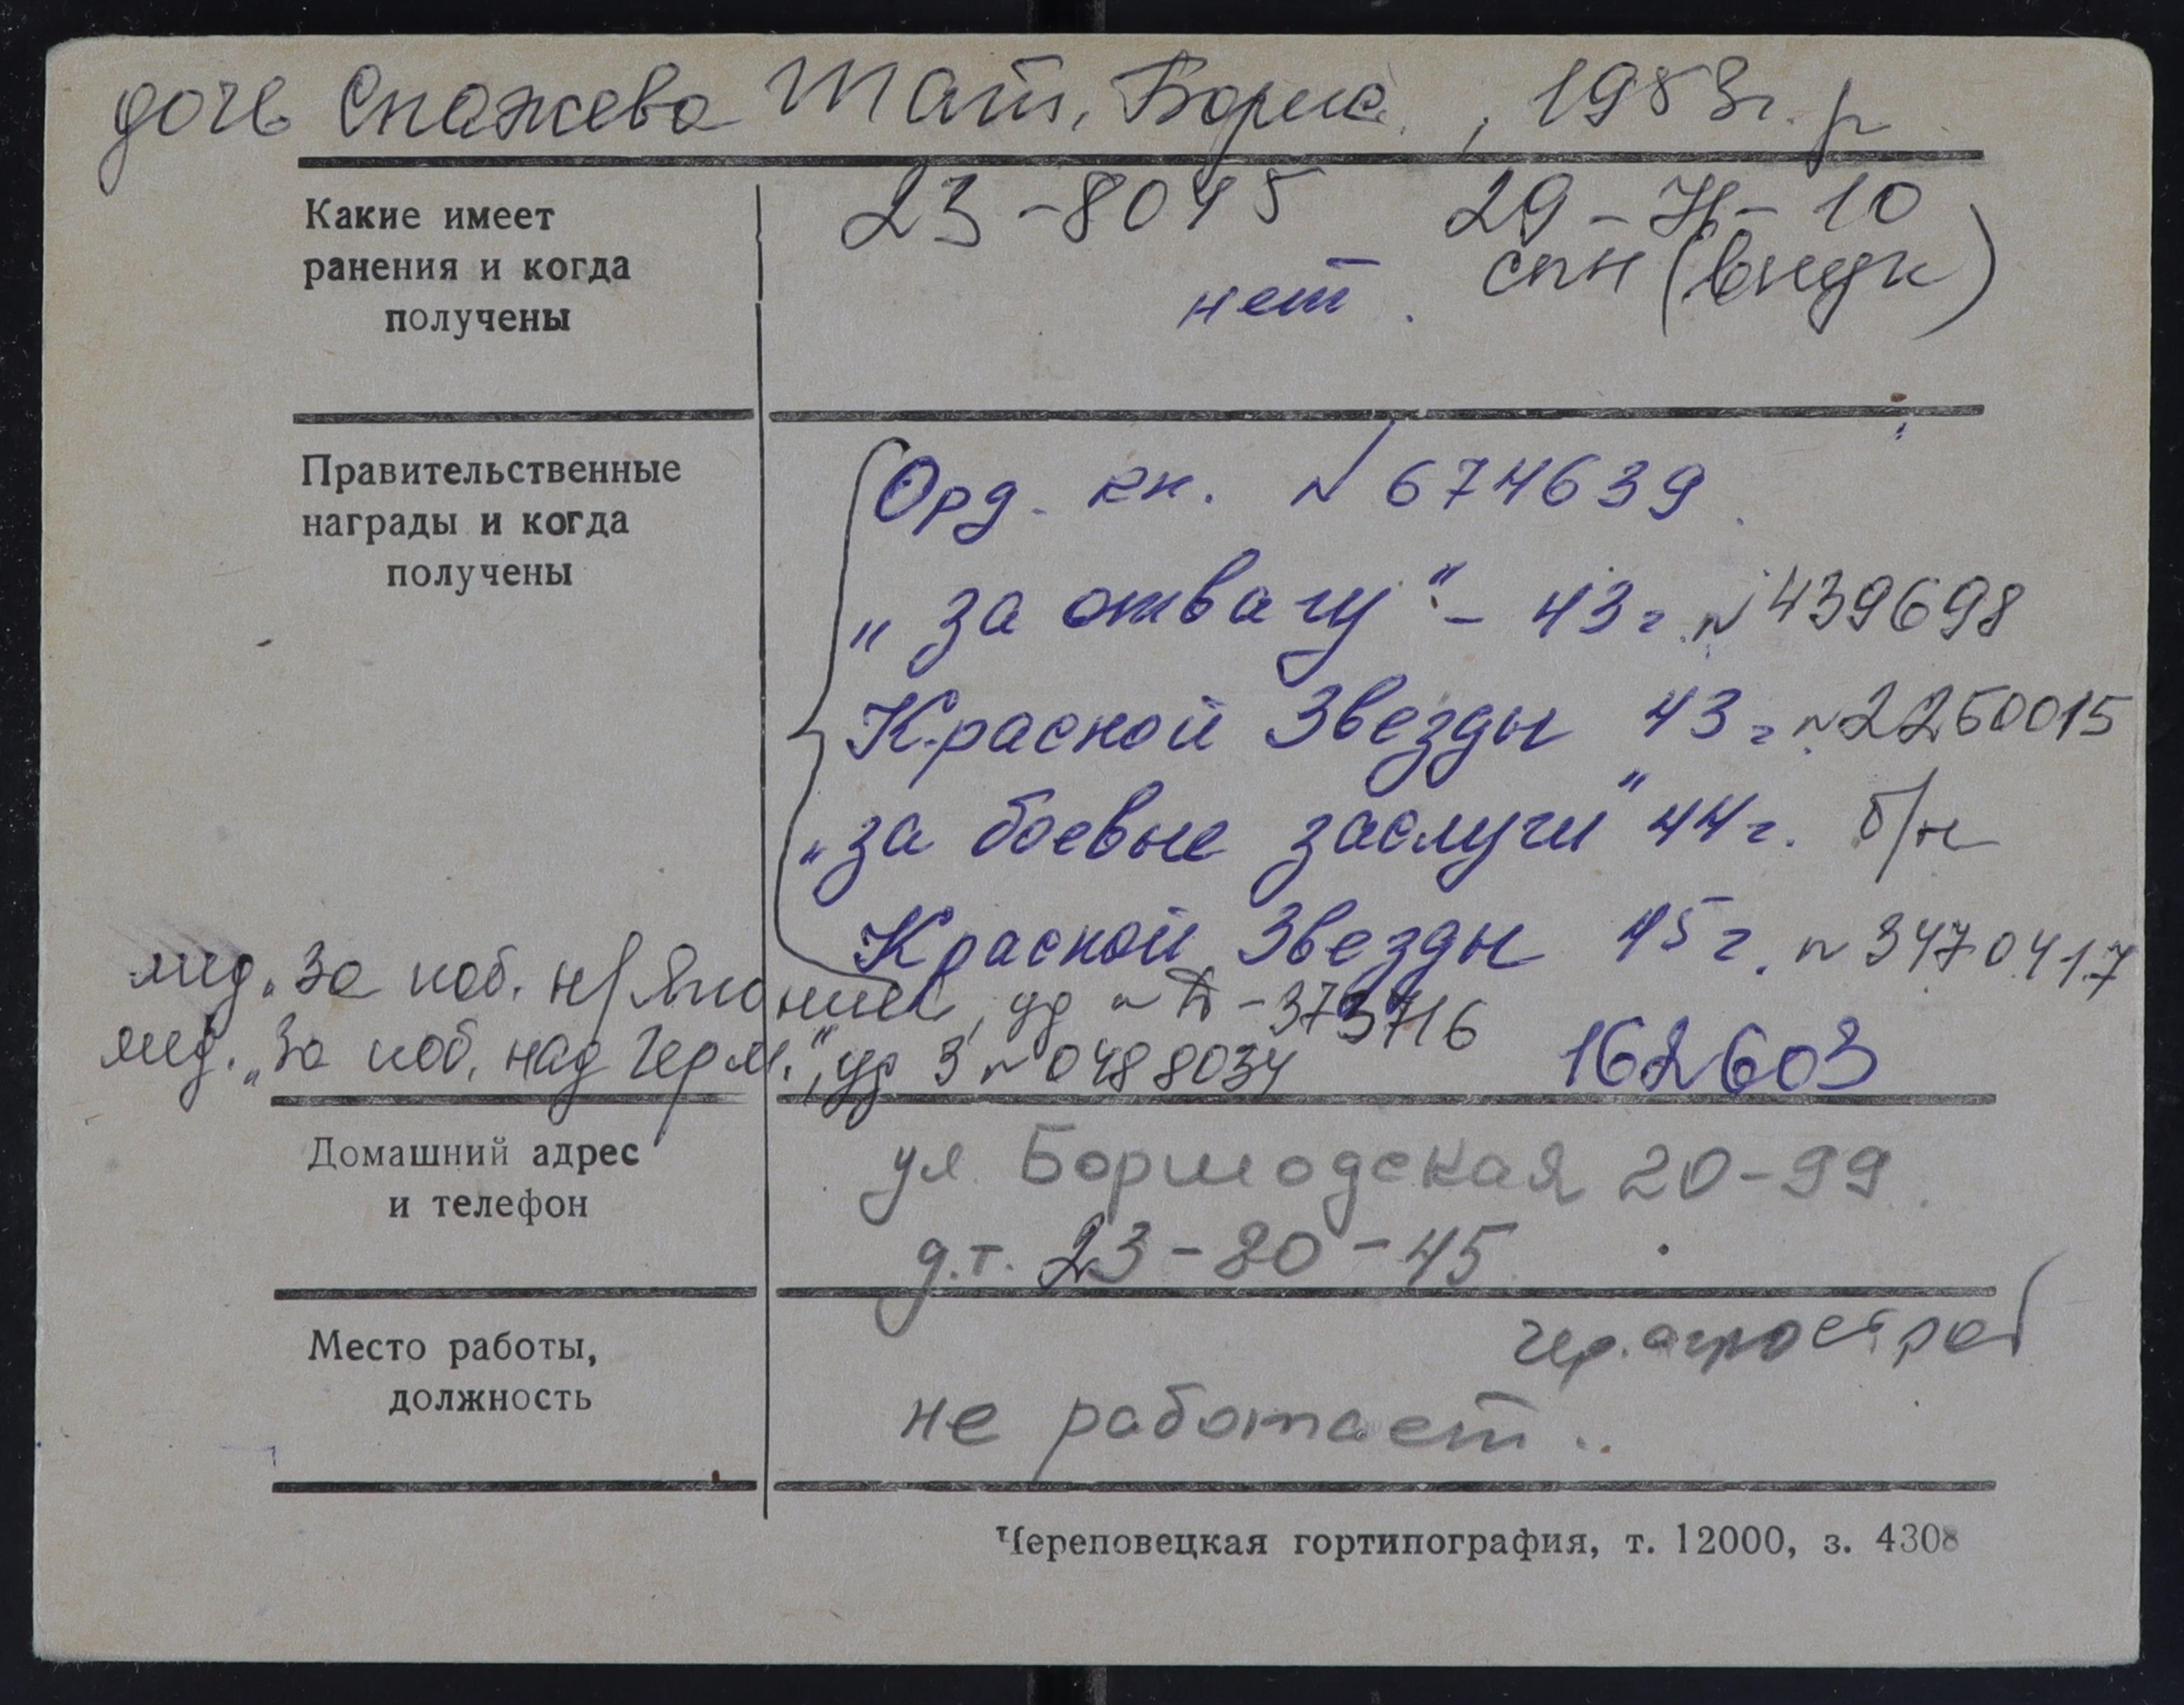 дочь Спажева Тат. Борис., 1953 г. р
Какие имеет ранения и когда получены
23-8045 29-71-10
нет. спн (внук)
Правительственные награды и когда получены
Орд. кн. № 674639.
„за отвагу" - 43 г. № 439698
Красной Звезды 43 г № 2250015
„за боевые заслуги" 44 г. б/н
Красной Звезды 45 г. № 3470417
мед. „За поб. н/Японией, уд № - 373716
мед. „За поб. над Герм.", уд З № 0488034 162603
Домашний адрес и телефон
ул. Боршодская 20-99.
д.т. 23-80-45
Место работы, должность
не работает.
Череповецкая гортипография, т. 12000, з. 4308